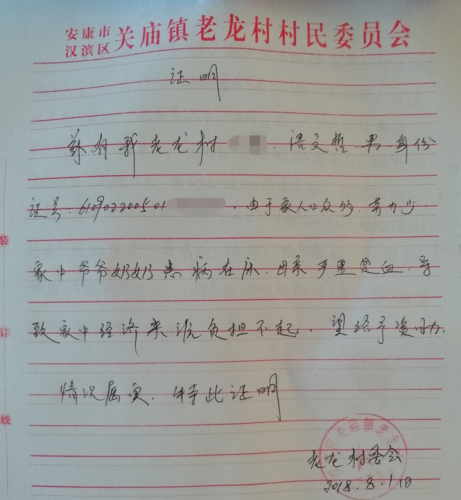 安康市
汉滨区 关庙镇老龙村村民委员会
证明
兹有我老龙村 ，浩文哲，男，身份
证号：610902200501 ，由于家人口众多，劳力少
家中爷爷奶奶患病在床，母亲严重贫血，导
致家中经济来源负担不起，望给予资助。
情况属实，特此证明
装
订
线
老龙村委会
2018.8.10